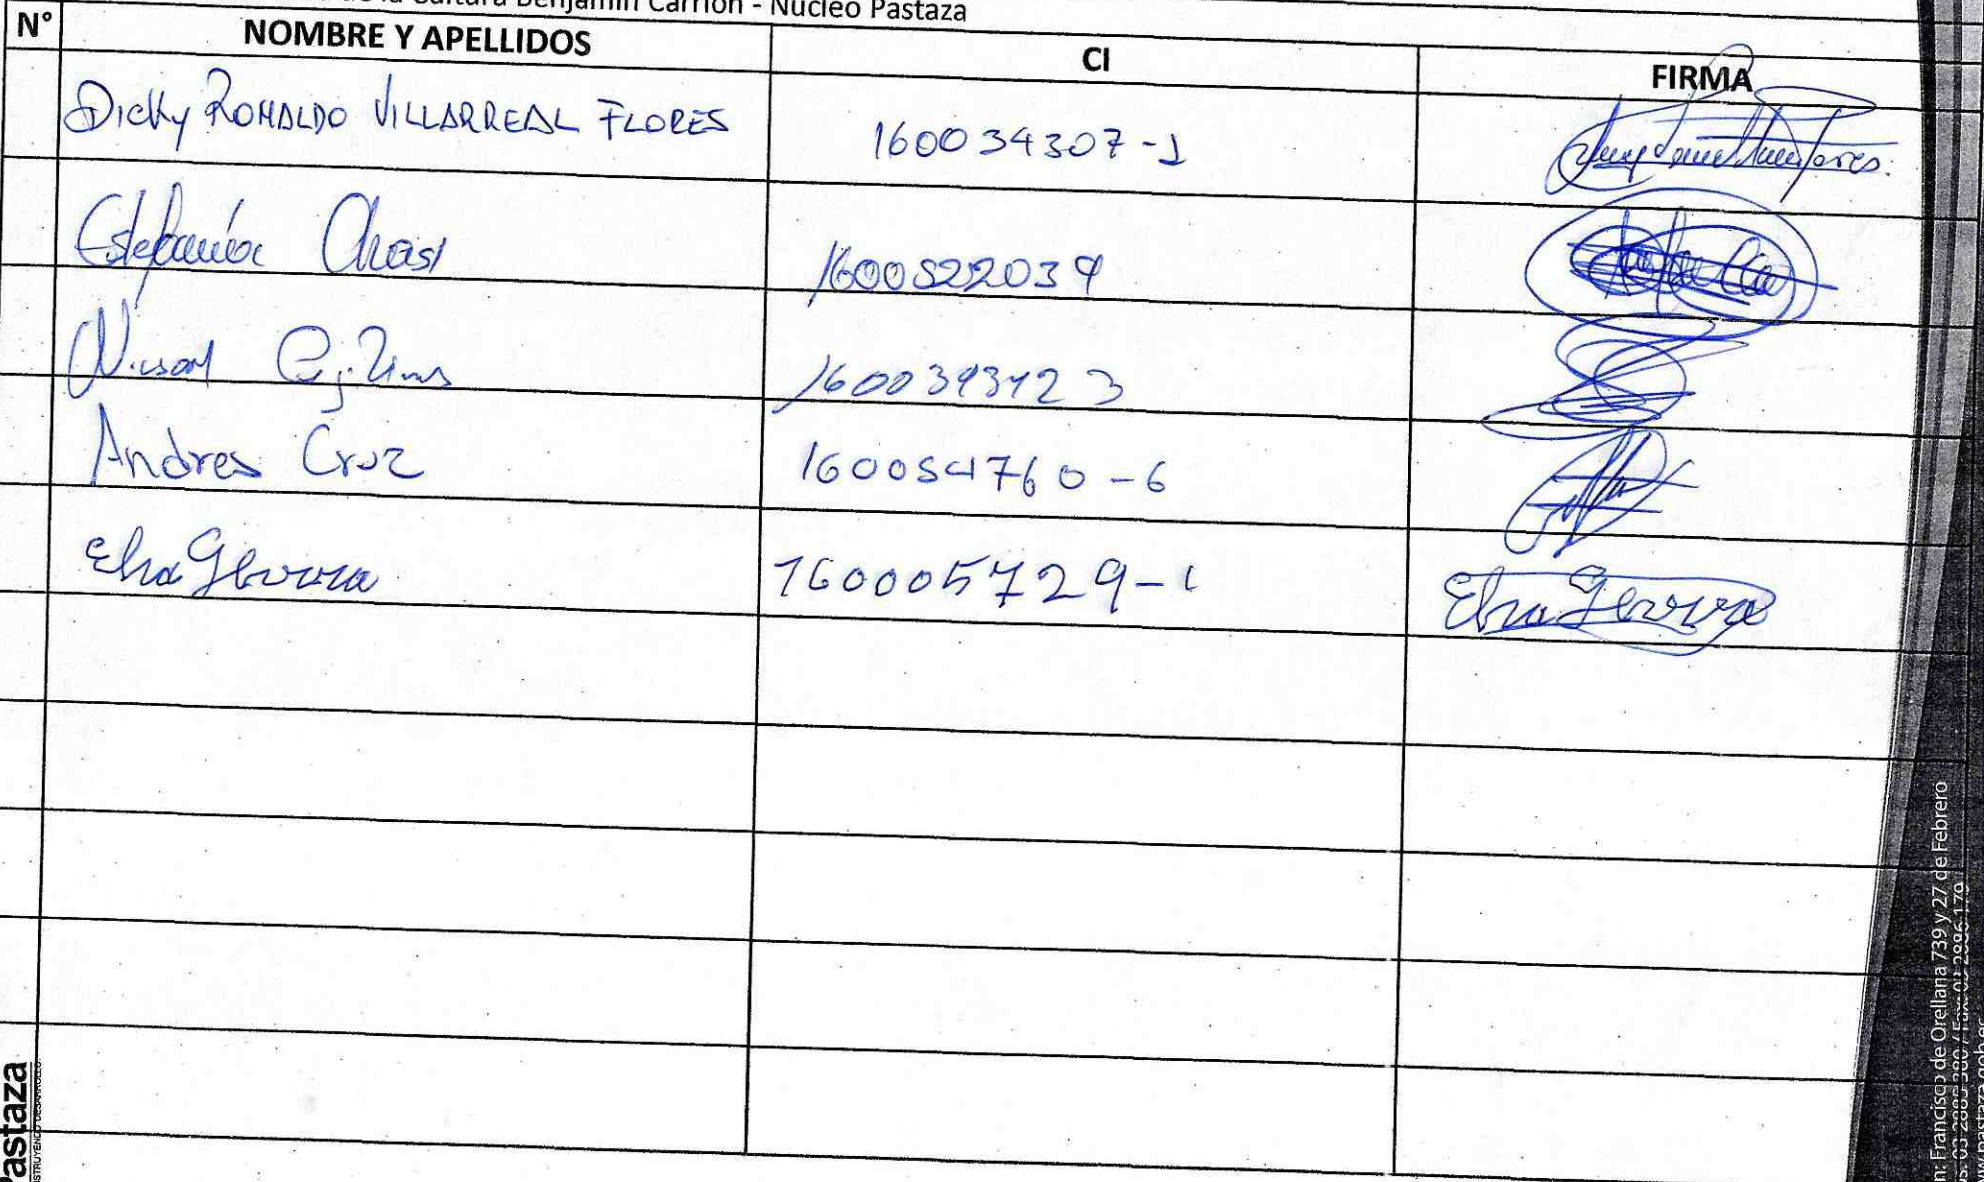 de la Cultura Benjamín Carrión - Núcleo Pastaza
N° NOMBRE Y APELLIDOS CI FIRMA
Dicky ROMALDO VILLARREAL FLORES 160034307-1
Estefanía Chasi 1600522039
160039342 3
Andres Cruz 160054760-6
Elsa Guerra 160005729-1 Elsa Guerra
Pastaza
n: Francisco de Orellana 739 y 27 de Febrero